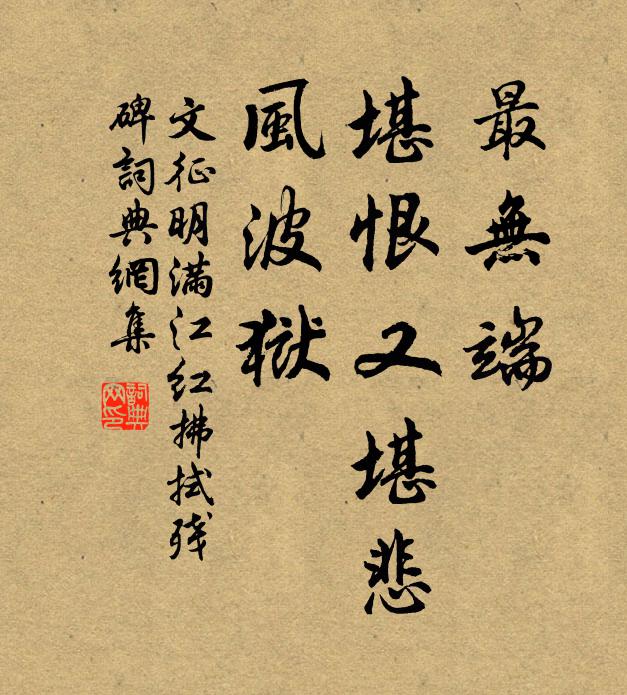 最無端
堪恨又堪悲
風波獄
文征明滿江紅拂拭殘
碑詞典網集
詞典網印